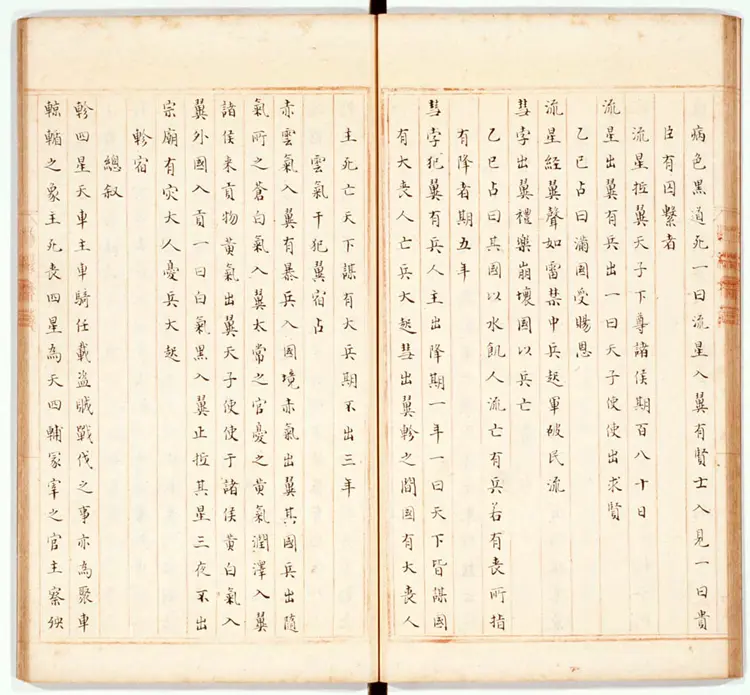 病色黑道死一曰流星入翼有賢士入見一曰貴
臣有囚繫者
流星抵翼天子下尊諸侯期百八十日
流星出翼有兵出一曰天子使使出求賢
乙巳占曰滿國受賜恩
流星經翼聲如雷禁中兵起軍破民流
彗孛出翼禮樂崩壞國以兵亡
乙巳占曰其國以水飢人流亡有兵若有喪所指
有降者期五年
彗孛犯翼有兵人主出降期一年一曰天下皆謀國
有大喪人亡兵大起彗出翼軫之間國有大喪人
主死亡天下謀有大兵期不出三年
雲氣干犯翼宿占
赤雲氣入翼有暴兵入國境赤氣出翼其國兵出隨
氣所之蒼白氣入翼太常之官憂之黃氣潤澤入翼
諸侯来貢物黃氣出翼天子使使于諸侯黃白氣入
翼外國入貢一曰白氣黑入翼止抵其星三夜不出
宗廟有灾大人憂兵大起
軫宿
總叙
軫四星天車主車騎任載盗賊戰伐之事亦為聚車
轅輴之象主死喪四星為天四輔冢宰之官主察殃